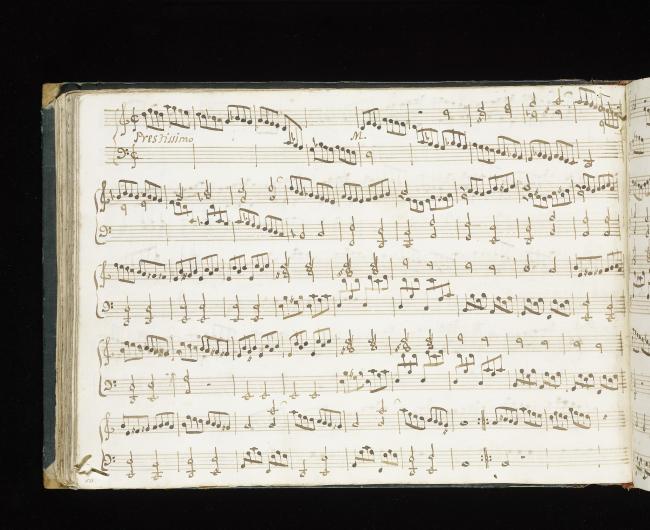 Prestissimo
M.